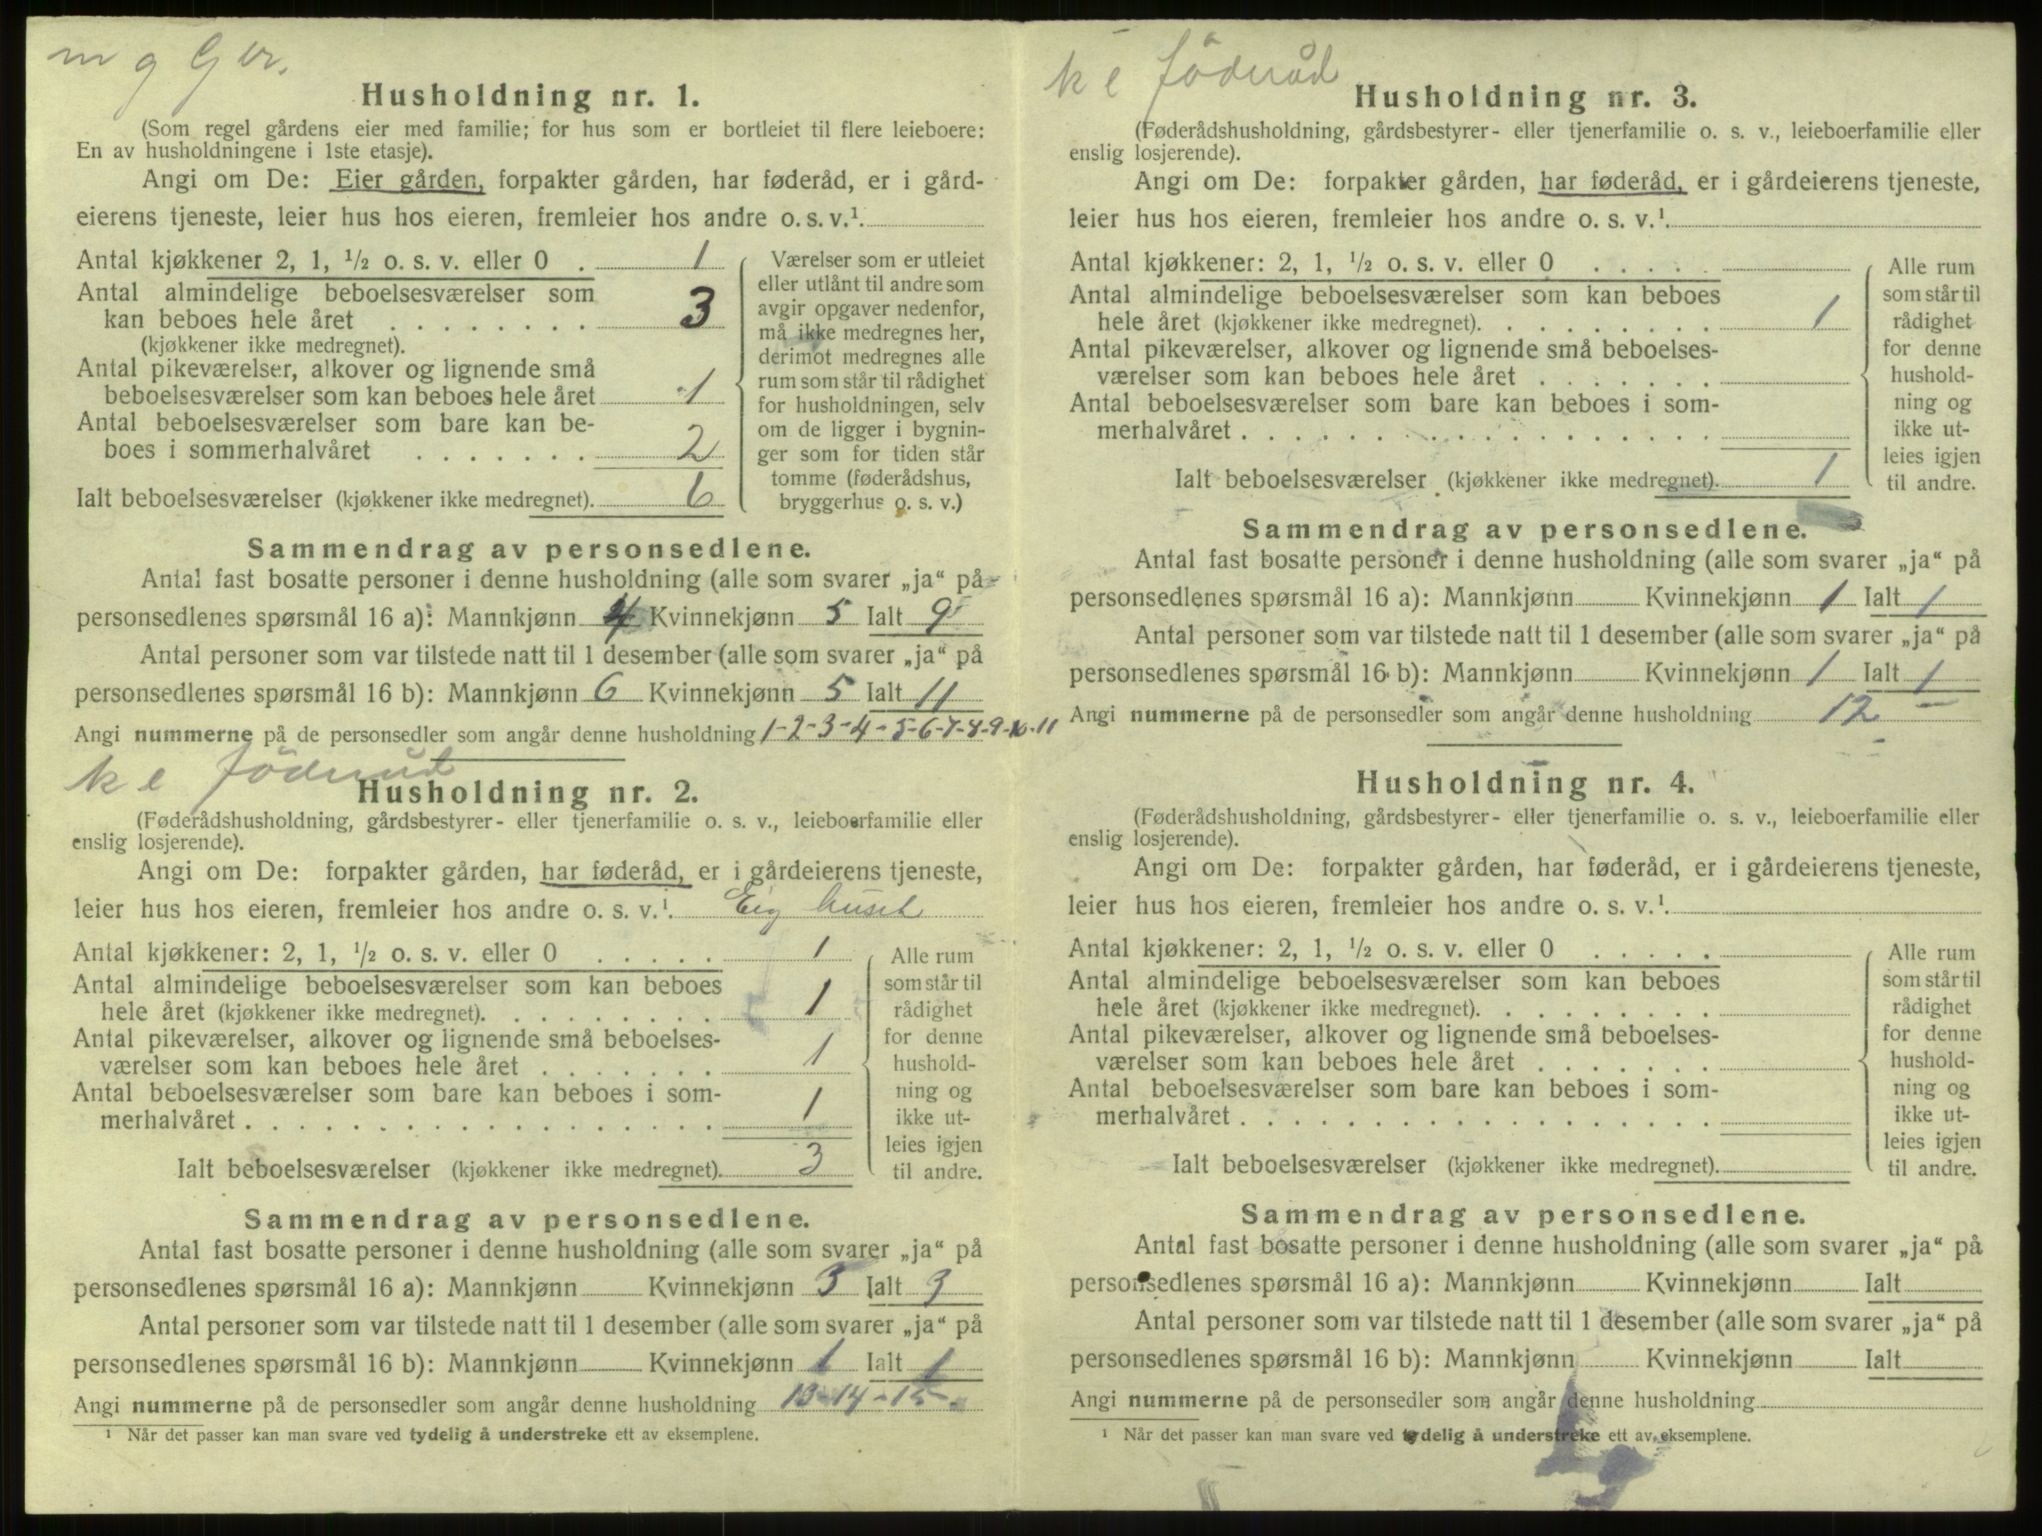 m g G br.
Husholdning nr. 1.
(Som regel gårdens eier med familie; for hus som er bortleiet til flere leieboere:
En av husholdningene i 1ste etasje).
Angi om De: Eier gården, forpakter gården, har føderåd, er i gård-
eierens tjeneste, leier hus hos eieren, fremleier hos andre o. s. v.¹.
Antal kjøkkener 2, 1, ½ o. s. v. eller 0 . 1
Antal almindelige beboelsesværelser som
kan beboes hele året . . . . . . . . 3
(kjøkkener ikke medregnet).
Antal pikeværelser, alkover og lignende små
beboelsesværelser som kan beboes hele året 1
Antal beboelsesværelser som bare kan be-
boes i sommerhalvåret . . . . . . . 2
Ialt beboelsesværelser (kjøkkener ikke medregnet). 6
Værelser som er utleiet
eller utlånt til andre som
avgir opgaver nedenfor,
må ikke medregnes her,
derimot medregnes alle
rum som står til rådighet
for husholdningen, selv
om de ligger i bygnin-
ger som for tiden står
tomme (føderådshus,
bryggerhus o. s. v.)
Sammendrag av personsedlene.
Antal fast bosatte personer i denne husholdning (alle som svarer „ja“ på
personsedlenes spørsmål 16 a): Mannkjønn 4 Kvinnekjønn 5 Ialt 9
Antal personer som var tilstede natt til 1 desember (alle som svarer „ja“ på
personsedlenes spørsmål 16 b): Mannkjønn 6 Kvinnekjønn 5 Ialt 11
Angi nummerne på de personsedler som angår denne husholdning 1-2-3-4-5-6-7-8-9-10-11
k e föderåd
Husholdning nr. 2.
(Føderådshusholdning, gårdsbestyrer- eller tjenerfamilie o. s. v., leieboerfamilie eller
enslig losjerende).
Angi om De: forpakter gården, har føderåd, er i gårdeierens tjeneste,
leier hus hos eieren, fremleier hos andre o. s. v.¹. Eig huset
Antal kjøkkener: 2, 1, ½ o. s. v. eller 0 . . . . . 1
Antal almindelige beboelsesværelser som kan beboes
hele året (kjøkkener ikke medregnet). . . . . . . . . 1
Antal pikeværelser, alkover og lignende små beboelses-
værelser som kan beboes hele året . . . . . . . 1
Antal beboelsesværelser som bare kan beboes i som-
merhalvåret . . . . . . . . . . . . . . . . . . 1
Ialt beboelsesværelser (kjøkkener ikke medregnet). 3
Alle rum
som står til
rådighet
for denne
hushold-
ning og
ikke ut-
leies igjen
til andre.
Sammendrag av personsedlene.
Antal fast bosatte personer i denne husholdning (alle som svarer „ja“ på
personsedlenes spørsmål 16 a): Mannkjønn Kvinnekjønn 3 Ialt 3
Antal personer som var tilstede natt til 1 desember (alle som svarer „ja“ på
personsedlenes spørsmål 16 b): Mannkjønn Kvinnekjønn 1 Ialt 1
Angi nummerne på de personsedler som angår denne husholdning 13-14-15
¹ Når det passer kan man svare ved tydelig å understreke ett av eksemplene.
k e föderåd
Husholdning nr. 3.
(Føderådshusholdning, gårdsbestyrer- eller tjenerfamilie o. s. v., leieboerfamilie eller
enslig losjerende).
Angi om De: forpakter gården, har føderåd, er i gårdeierens tjeneste,
leier hus hos eieren, fremleier hos andre o. s. v.¹.
Antal kjøkkener: 2, 1, ½ o. s. v. eller 0 . . . . .
Antal almindelige beboelsesværelser som kan beboes
hele året (kjøkkener ikke medregnet). . . . . . . . . 1
Antal pikeværelser, alkover og lignende små beboelses-
værelser som kan beboes hele året . . . . . . .
Antal beboelsesværelser som bare kan beboes i som-
merhalvåret . . . . . . . . . . . . . . . . . .
Ialt beboelsesværelser (kjøkkener ikke medregnet). 1
Alle rum
som står til
rådighet
for denne
hushold-
ning og
ikke ut-
leies igjen
til andre.
Sammendrag av personsedlene.
Antal fast bosatte personer i denne husholdning (alle som svarer „ja“ på
personsedlenes spørsmål 16 a): Mannkjønn Kvinnekjønn 1 Ialt 1
Antal personer som var tilstede natt til 1 desember (alle som svarer „ja“ på
personsedlenes spørsmål 16 b): Mannkjønn Kvinnekjønn 1 Ialt 1
Angi nummerne på de personsedler som angår denne husholdning 12
Husholdning nr. 4.
(Føderådshusholdning, gårdsbestyrer- eller tjenerfamilie o. s. v., leieboerfamilie eller
enslig losjerende).
Angi om De: forpakter gården, har føderåd, er i gårdeierens tjeneste,
leier hus hos eieren, fremleier hos andre o. s. v.¹.
Antal kjøkkener: 2, 1, ½ o. s. v. eller 0 . . . . .
Antal almindelige beboelsesværelser som kan beboes
hele året (kjøkkener ikke medregnet). . . . . . . . .
Antal pikeværelser, alkover og lignende små beboelses-
værelser som kan beboes hele året . . . . . . .
Antal beboelsesværelser som bare kan beboes i som-
merhalvåret . . . . . . . . . . . . . . . . . .
Ialt beboelsesværelser (kjøkkener ikke medregnet).
Alle rum
som står til
rådighet
for denne
hushold-
ning og
ikke ut-
leies igjen
til andre.
Sammendrag av personsedlene.
Antal fast bosatte personer i denne husholdning (alle som svarer „ja“ på
personsedlenes spørsmål 16 a): Mannkjønn Kvinnekjønn Ialt
Antal personer som var tilstede natt til 1 desember (alle som svarer „ja“ på
personsedlenes spørsmål 16 b): Mannkjønn Kvinnekjønn Ialt
Angi nummerne på de personsedler som angår denne husholdning
¹ Når det passer kan man svare ved tydelig å understreke ett av eksemplene.